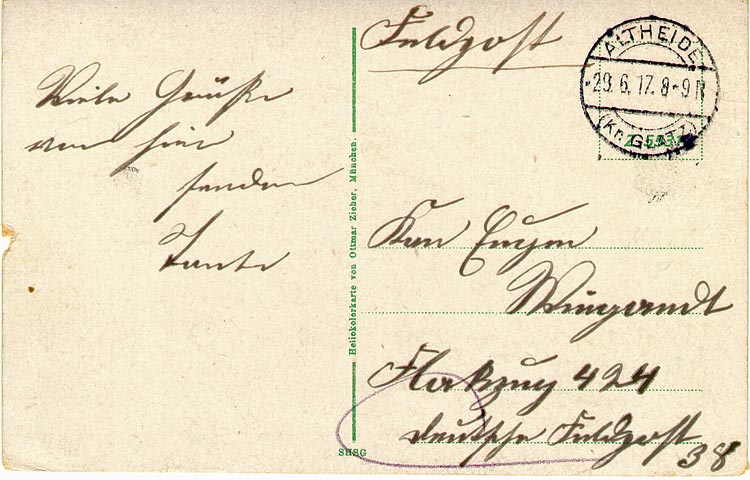 Feldpost
ALTHEIDE
29.6.17.8-9N
(Kr. GLATZ)
Viele Grüße
von hier
senden
Tante
Eugen
Wingerndt
Flakzug 424
deutsche Feldpost
38
Heliokolorkarte von Ottmar Zieher, München.
SHSG